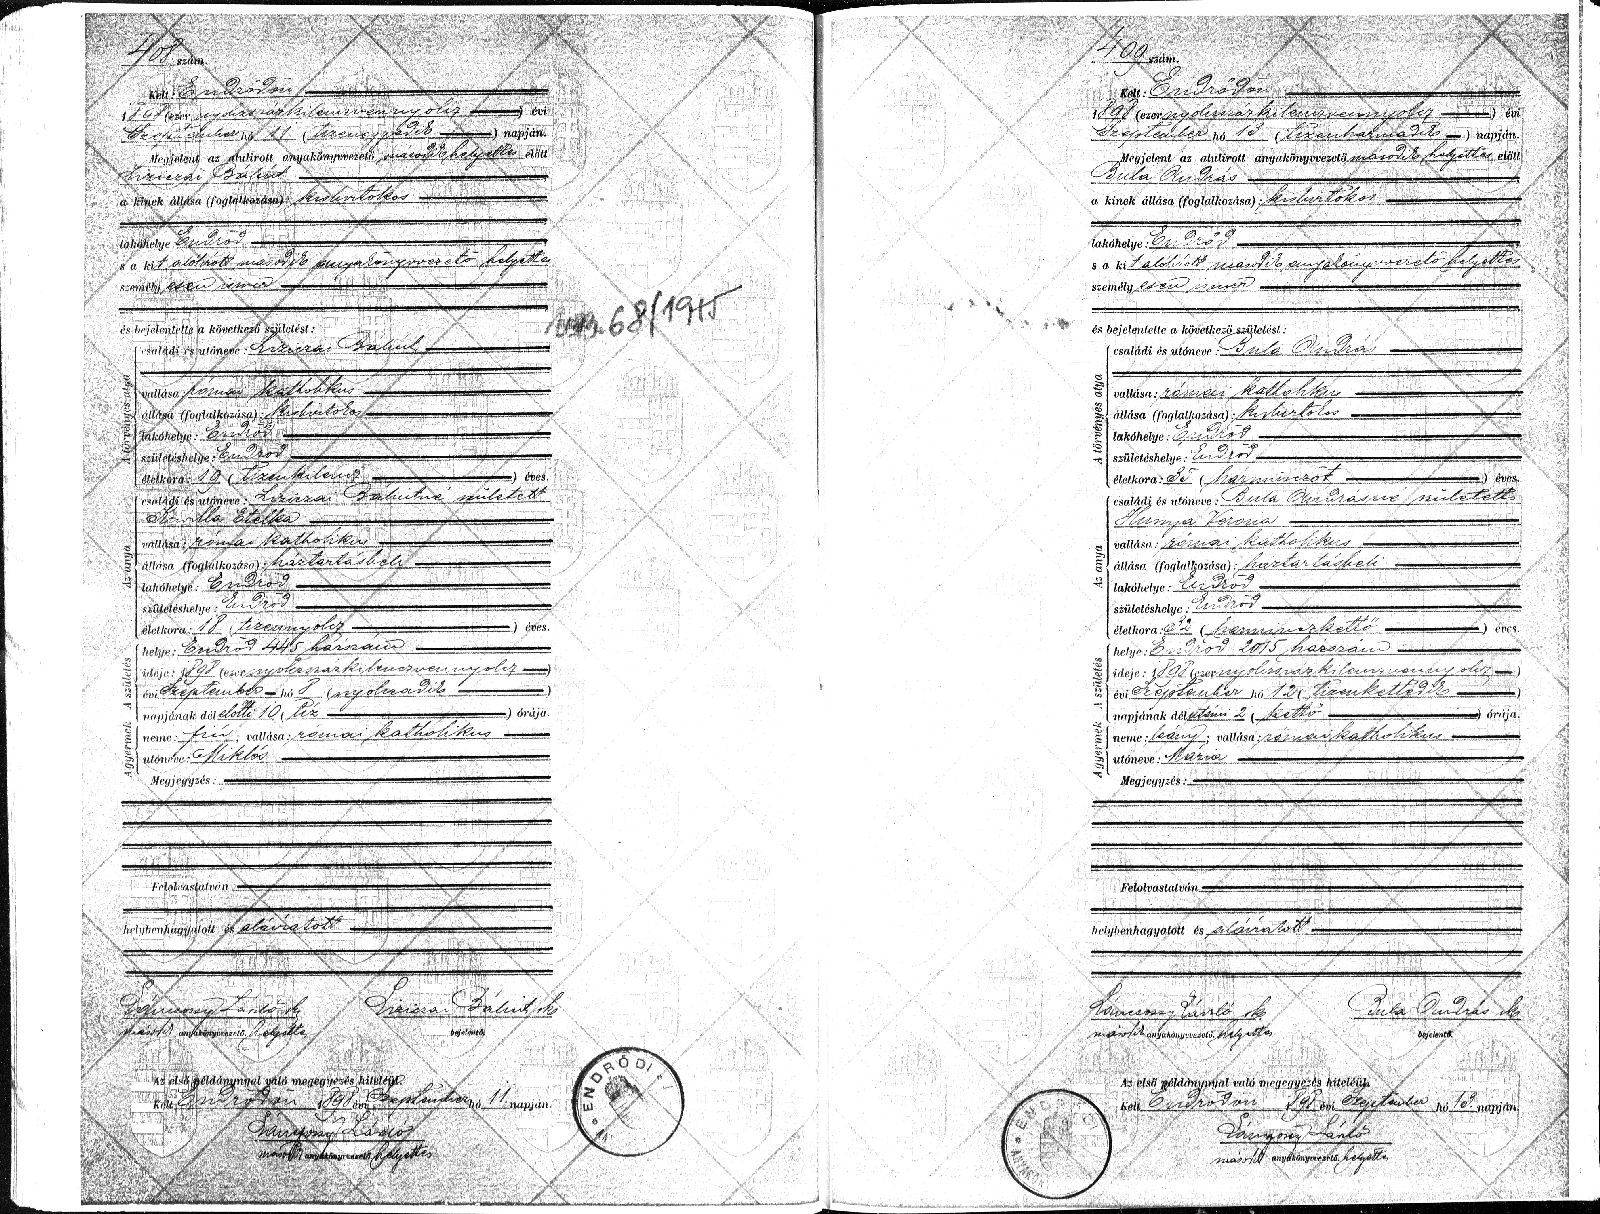 408 szám.
Kelt: Endrődön
1898 (ezernyolcszázkilenczvennyolcz) évi
Szeptember hó 11 (tizenegyedik) napján.
Megjelent az alulirott anyakönyvvezető második helyettes előtt
Bálint
a kinek állása (foglalkozása): kisbirtokos
lakóhelye Endrőd
s a kit alólirott második anyakönyvvezető helyettes
személyesen ismer
és bejelentette a következő születést:
A törvényes atya
családi és utóneve: Bálint
vallása: római katholikus
állása (foglalkozása): kisbirtokos
lakóhelye: Endrőd
születéshelye: Endrőd
életkora: 19 (tizenkilencz) éves.
Az anya
családi és utóneve: Bálintné született
Etelka
vallása: római katholikus
állása (foglalkozása): háztartásbeli
lakóhelye: Endrőd
születéshelye: Endrőd
életkora: 18 (tizennyolcz) éves.
A születés
helye: Endrőd 445 házszám
ideje: 1898 (ezernyolczszázkilenczvennyolcz)
évi Szeptember hó 8 (nyolczadik)
napjának délelőtti 10 (tíz) órája.
A gyermek
neme: fiú; vallása: római katholikus
utóneve: Miklós
Megjegyzés:
Felolvastatván
helybenhagyatott és aláiratott
László sk
Bálint sk
második anyakönyvvezető. helyettes
bejelentő.
Az első példánynyal való megegyezés hiteléül.
Kelt Endrődön 1898 évi Szeptember hó 11. napján.
László
második anyakönyvvezető. helyettes
68/1915
ENDRŐDI
409 szám.
Kelt: Endrődön
1898 (ezernyolczszázkilenczvennyolcz) évi
Szeptember hó 13 (tizenharmadik) napján.
Megjelent az alulirott anyakönyvvezető második helyettes előtt
Bula András
a kinek állása (foglalkozása): kisbirtokos
lakóhelye: Endrőd
s a kit alólirott második anyakönyvvezető helyettes
személyesen ismer
és bejelentette a következő születést:
A törvényes atya
családi és utóneve: Bula András
vallása: római katholikus
állása (foglalkozása): kisbirtokos
lakóhelye: Endrőd
születéshelye: Endrőd
életkora: 35 (harminczöt) éves.
Az anya
családi és utóneve: Bula Andrásné született
Hunya Verona
vallása: római katholikus
állása (foglalkozása): háztartásbeli
lakóhelye: Endrőd
születéshelye: Endrőd
életkora: 32 (harminczkettő) éves.
A születés
helye: Endrőd 2015 házszám
ideje: 1898 (ezernyolczszázkilenczvennyolcz)
évi Szeptember hó 12 (tizenkettedik)
napjának délutáni 2 (kettő) órája.
A gyermek
neme: leány; vallása: római katholikus
utóneve: Mária
Megjegyzés:
Felolvastatván
helybenhagyatott és aláiratott
László sk
Bula András sk
második anyakönyvvezető. helyettes
bejelentő.
Az első példánynyal való megegyezés hiteléül.
Kelt Endrődön 1898 évi Szeptember hó 13 napján.
László
második anyakönyvvezető. helyettes